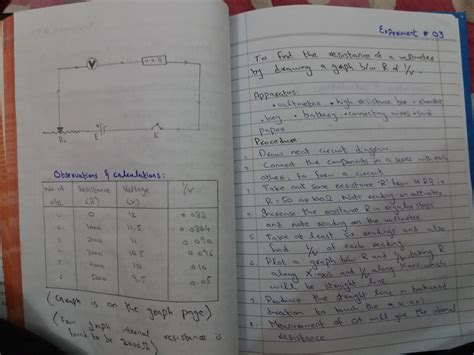 V
H.R.B
Rh
E
K
Observations & calculations:
No of obs
Resistance (R)
Voltage (V)
1/V
0
12
0.082
1000
11.5
0.0864
2000
11
0.090
3000
10.5
0.096
4000
10
0.10
6
5000
9.5
(Graph is on the graph page)
(From graph internal resistance is found to be
Experiment # 03
To find the resistance of a voltmeter
by drawing a graph b/w R & 1/V.
Apparatus:
• voltmeter • high resistance box • rheostat
• key • battery • connecting wires • sand
paper
Procedure:
1. Draw neat circuit diagram
2. Connect the components in a series with each
others, to form a circuit.
3. Take out some resistance 'R' from H.R.B is
R = 50 or 100Ω. Note reading
4. Increase the resistance R in regular steps
and note reading on the voltmeter
5. Take at least six readings and also
find 1/V of each reading
6. Plot a graph b/w R and 1/V taking R
along X-axis and 1/V along Y-axis which
will be straight line
7. Produce the straight line in backward
direction to touch the x axis
8. Measurement of OA will give the internal
resistance